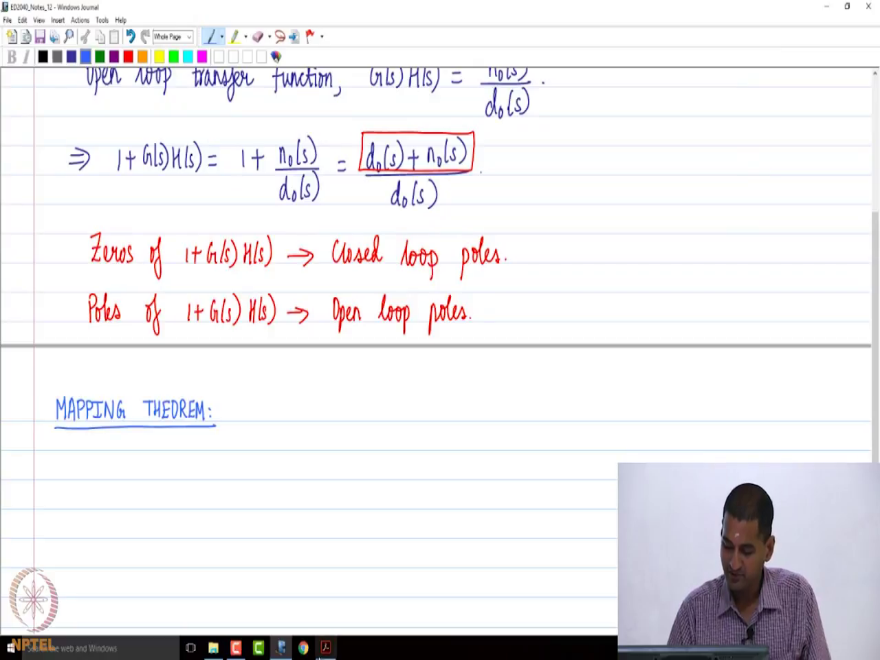 ED2040_Notes_12 - Windows Journal
File Edit View Insert Actions Tools Help
Whole Page
B I
Open loop transfer function, G(s)H(s) = n₀(s)/d₀(s).
⇒ 1+G(s)H(s) = 1 + n₀(s)/d₀(s) = d₀(s)+n₀(s)/d₀(s).
Zeros of 1+G(s)H(s) → Closed loop poles.
Poles of 1+G(s)H(s) → Open loop poles.
MAPPING THEOREM:
NPTEL
the web and Windows